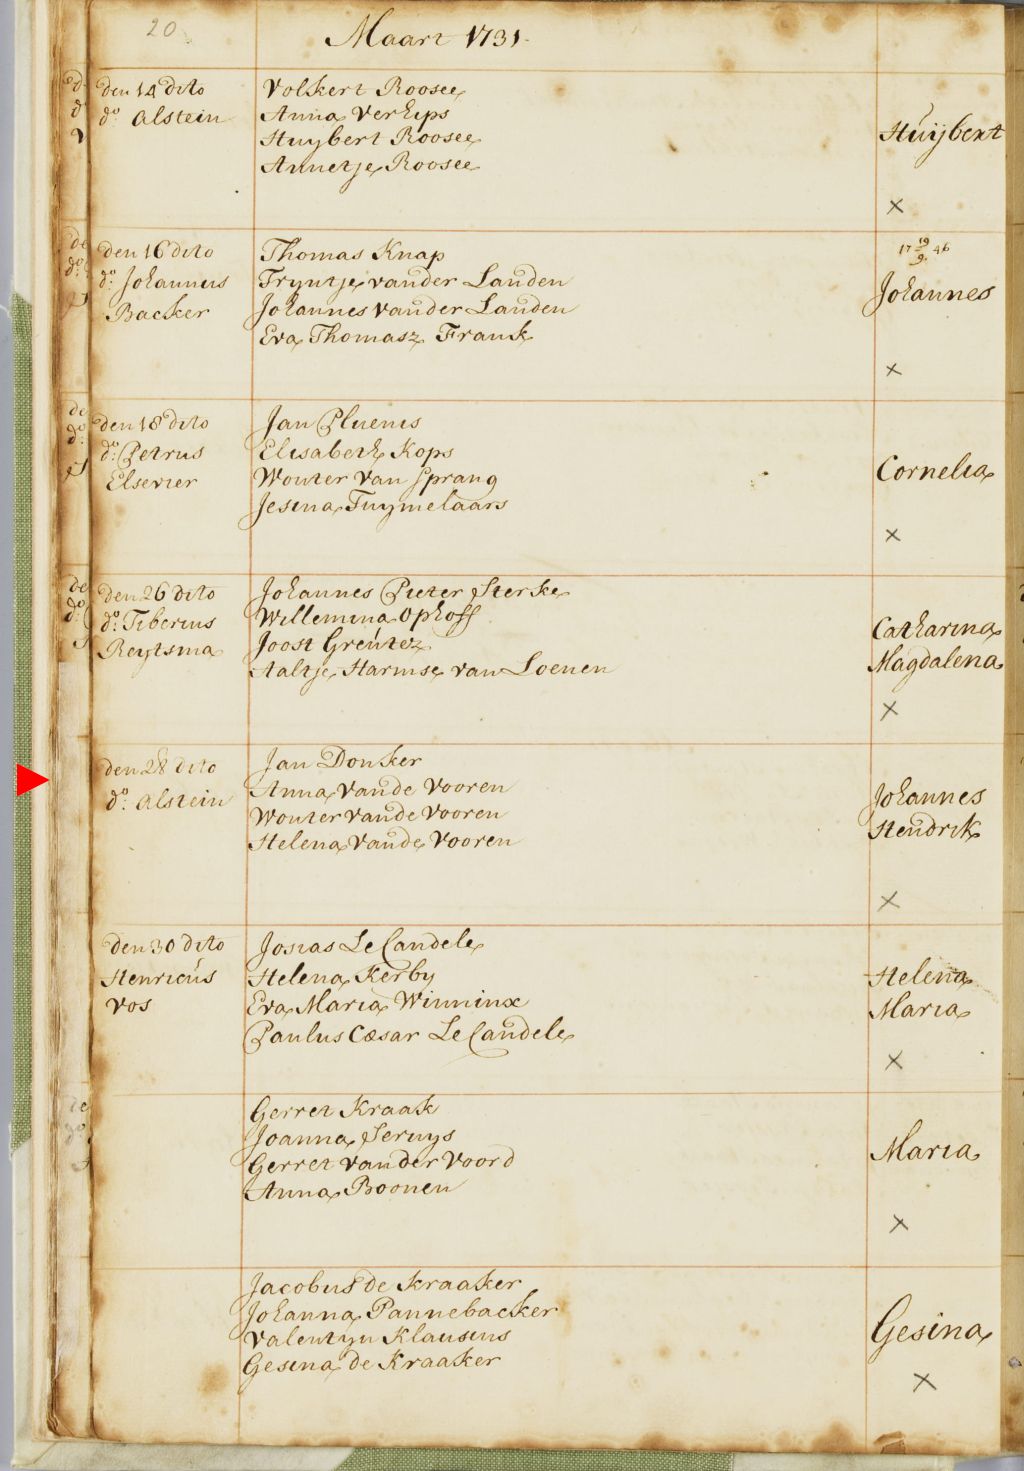 20
Maart 1731.
den 14 dito
do: Alstein
Volkert Roosee
Anna Verkips
Huybert Roosee
Annetje Roosee
Huijbert
×
den 16 dito
do: Johannes
Backer
Thomas Knap
Tryntje vander Landen
Johannes vander Landen
Eva Thomasz Frank
17 19/9 46
Johannes
×
den 18 dito
do: Petrus
Elsevier
Jan Pluenis
Elisabeth Kops
Wouter van Sprang
Jesina Tuymelaars
Cornelia
×
den 26 dito
do: Tiberius
Reytsma
Johannes Pieter Sterke
Willemina Ophoff
Joost Greutez
Aaltje Harmse van Loenen
Catharina
Magdalena
×
den 28 dito
do: Alstein
Jan Donker
Anna vande Vooren
Wouter vande Vooren
Helena vande Vooren
Johannes
Hendrik
×
den 30 dito
Henricus
Vos
Josias Le Candele
Helena Kerby
Eva Maria Winninx
Paulus Cæsar Le Candele
Helena
Maria
×
Gerret Kraak
Joanna Seruys
Gerret vander Voord
Anna Boonen
Maria
×
Jacobus de Kraaker
Johanna Pannebacker
Valentyn Klausius
Gesina de Kraaker
Gesina
×